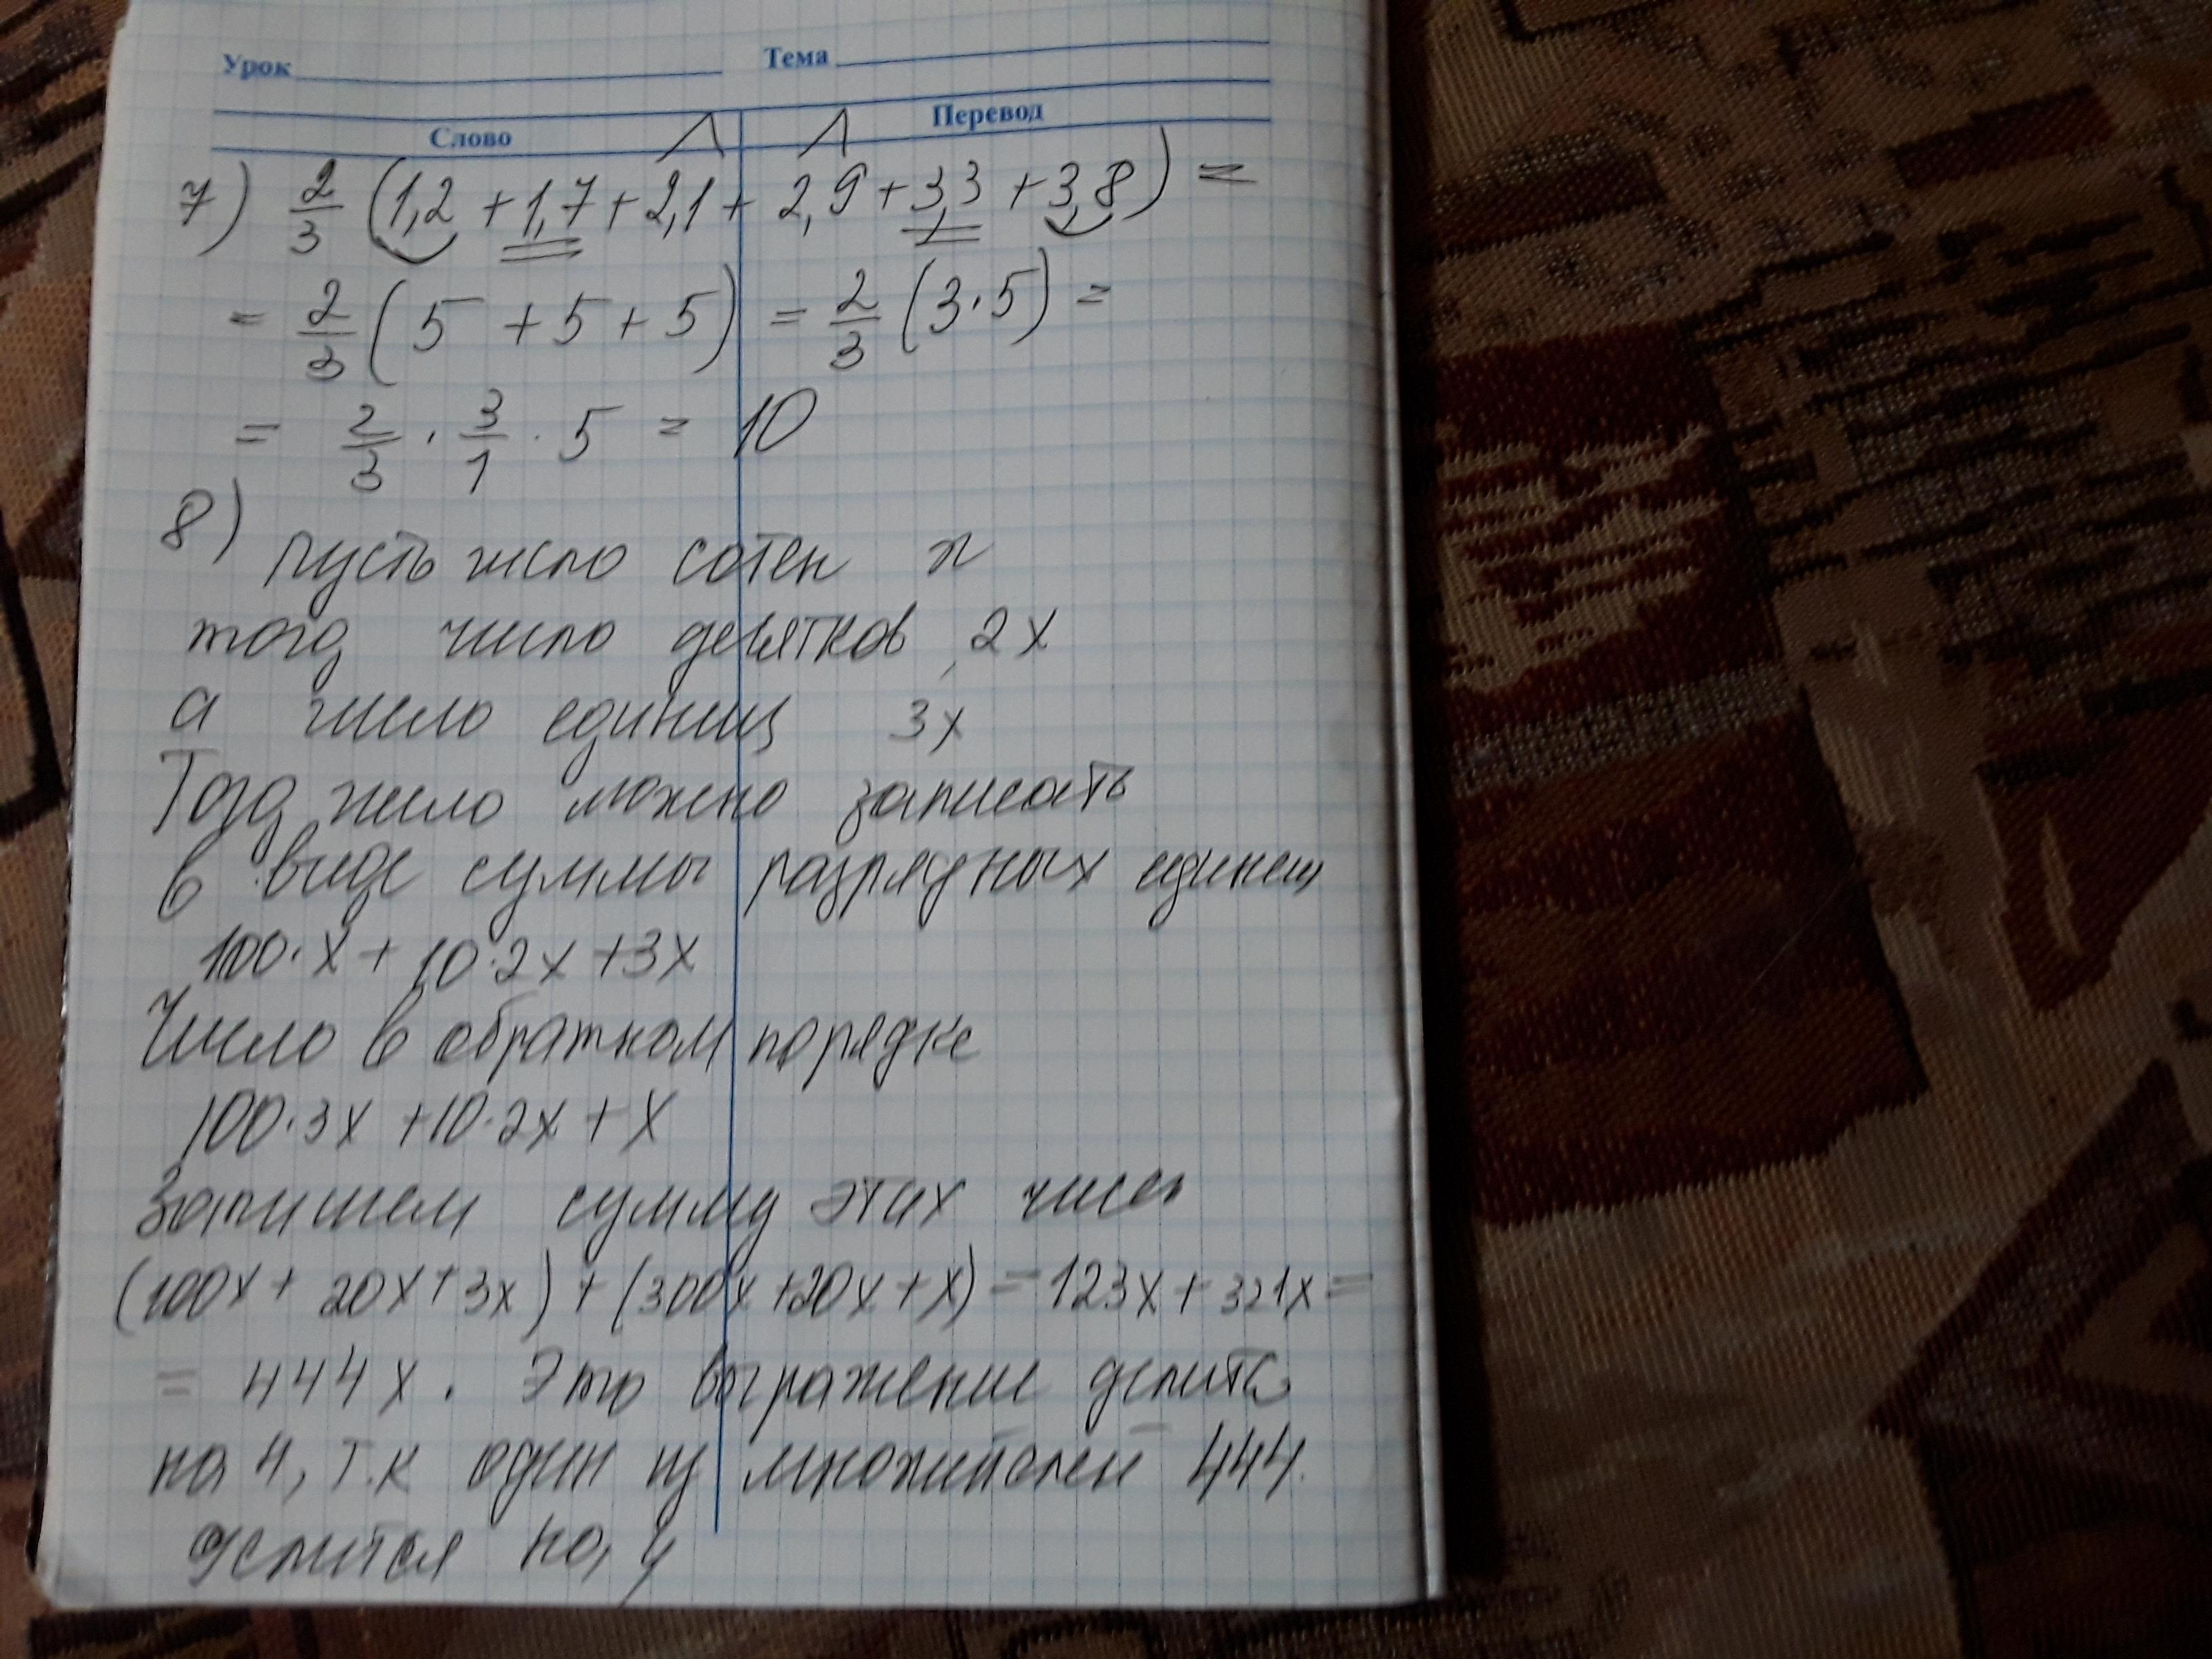 Урок Тема
Слово Перевод
7) 2/3 (1,2 + 1,7 + 2,1 + 2,9 + 3,3 + 3,8) =
= 2/3 (5 + 5 + 5) = 2/3 (3·5) =
= 2/3 · 3/1 · 5 = 10
8)
пусть число сотен х
тогд число десятков 2х
а число единиц 3х
Тогд число можно записать
в виде суммы разрядных единиц
100·х + 10·2х + 3х
Число в обратном порядке
100·3х + 10·2х + х
Запишем сумму этих чисел
(100х + 20х + 3х) + (300х + 20х + х) = 123х + 321х =
= 444х. Это выражение делится
на 4, т.к один из множителей 444
делится на 4